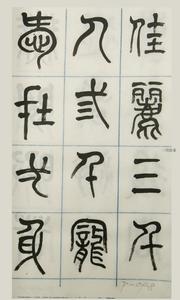 佳麗三千
人弎千寵
愛在弌身